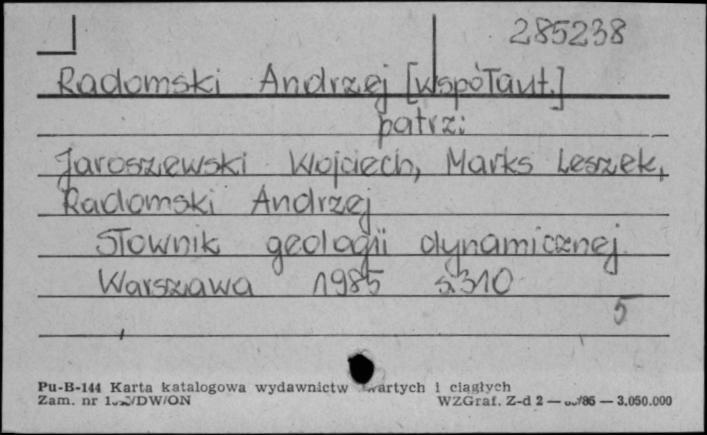 285238
Radomski Andrzej [współaut.]
patrz:
Jaroszewski Wojciech, Marks Leszek,
Radomski Andrzej
Słownik geologii dynamicznej.
Warszawa 1985 s.310
5
Pu-B-144 Karta katalogowa wydawnictw i ciągłych
Zam. nr WZGraf. Z-d 2 — — 3.050.000